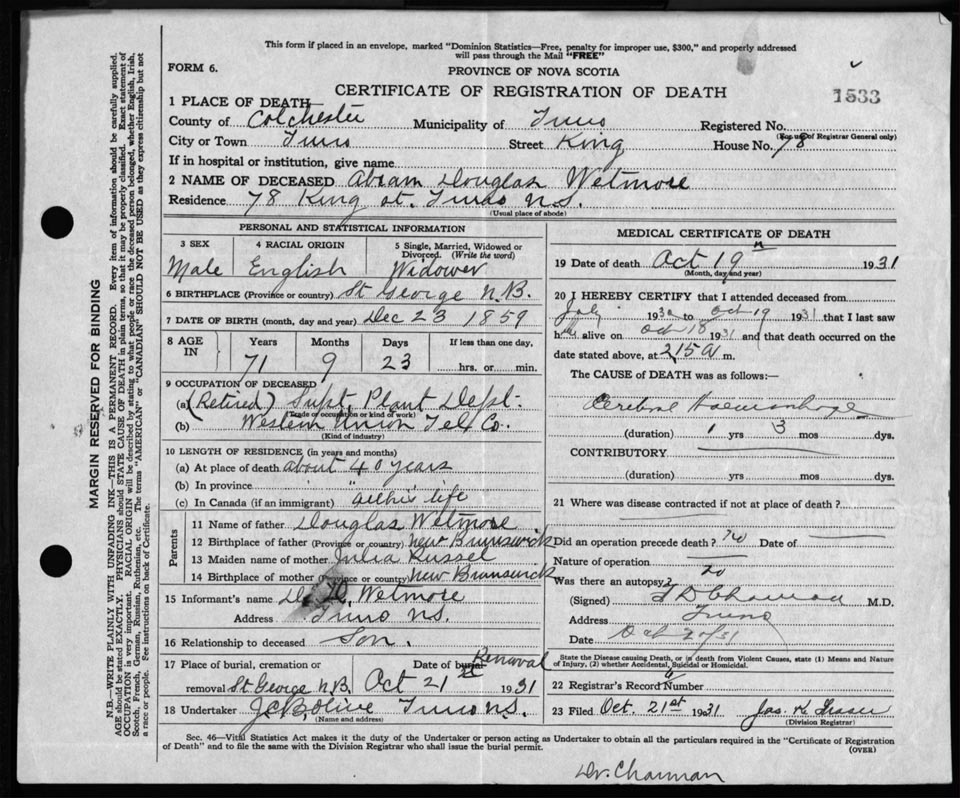 This form if placed in an envelope, marked "Dominion Statistics—Free, penalty for improper use, $300," and properly addressed
will pass through the Mail "FREE"
FORM 6.
PROVINCE OF NOVA SCOTIA
CERTIFICATE OF REGISTRATION OF DEATH
1533
1 PLACE OF DEATH
County of Colchester Municipality of Truro Registered No.
(For use of Registrar General only)
City or Town Truro Street King House No. 78
If in hospital or institution, give name
2 NAME OF DECEASED Abram Douglas Wetmore
Residence 78 King st. Truro N.S.
(Usual place of abode)
PERSONAL AND STATISTICAL INFORMATION
3 SEX 4 RACIAL ORIGIN 5 Single, Married, Widowed or Divorced. (Write the word)
Male English Widower
6 BIRTHPLACE (Province or country) St George N.B.
7 DATE OF BIRTH (month, day and year) Dec 23 1859
8 AGE IN Years Months Days If less than one day,
71 9 23 hrs. or min.
9 OCCUPATION OF DECEASED
(a) (Retired) Supt. Plant Dept.
(Trade or occupation or kind of work)
(b) Western Union Tel Co.
(Kind of industry)
10 LENGTH OF RESIDENCE (in years and months)
(a) At place of death about 40 years
(b) In province " "
(c) In Canada (if an immigrant) all his life
Parents
11 Name of father Douglas Wetmore
12 Birthplace of father (Province or country) New Brunswick
13 Maiden name of mother Julia Russel
14 Birthplace of mother (Province or country) New Brunswick
15 Informant's name Wetmore
Address Truro N.S.
16 Relationship to deceased Son.
17 Place of burial, cremation or Date of burial Removal
removal St George N.B. Oct 21 st 1931
18 Undertaker J.C.B. Olive Truro N.S.
(Name and address)
MEDICAL CERTIFICATE OF DEATH
19 Date of death Oct 19 1931
(Month, day and year)
20 I HEREBY CERTIFY that I attended deceased from
July 1930 to Oct 19 1931 that I last saw
him alive on Oct 18 1931 and that death occurred on the
date stated above, at 2.15 A m.
The CAUSE of DEATH was as follows:—
Cerebral Haemorrhage
(duration) 1 yrs 3 mos dys.
CONTRIBUTORY
(duration) yrs mos dys.
21 Where was disease contracted if not at place of death?
Did an operation precede death? No Date of
Nature of operation
Was there an autopsy? No
(Signed) M.D.
Address Truro
Date Oct 20/31
State the Disease causing Death, or in death from Violent Causes, state (1) Means and Nature
of Injury, (2) whether Accidental, Suicidal or Homicidal.
22 Registrar's Record Number
23 Filed Oct. 21st 1931 Jas. K. Fraser
(Division Registrar)
Sec. 46—Vital Statistics Act makes it the duty of the Undertaker or person acting as Undertaker to obtain all the particulars required in the "Certificate of Registration
of Death" and to file the same with the Division Registrar who shall issue the burial permit.
(OVER)
Dr. Charman
MARGIN RESERVED FOR BINDING
N.B.—WRITE PLAINLY WITH UNFADING INK—THIS IS A PERMANENT RECORD. Every item of information should be carefully supplied.
AGE should be stated EXACTLY. PHYSICIANS should STATE CAUSE OF DEATH in plain terms, so that it may be properly classified. Exact statement of
OCCUPATION is very important. RACIAL ORIGIN will be described by stating to what people or race the deceased person belonged, whether English, Irish,
Scotch, French, German, Russian, Ruthenian, etc. The terms "AMERICAN" or "CANADIAN" SHOULD NOT BE USED as they express citizenship but not
a race or people. See instructions on back of Certificate.